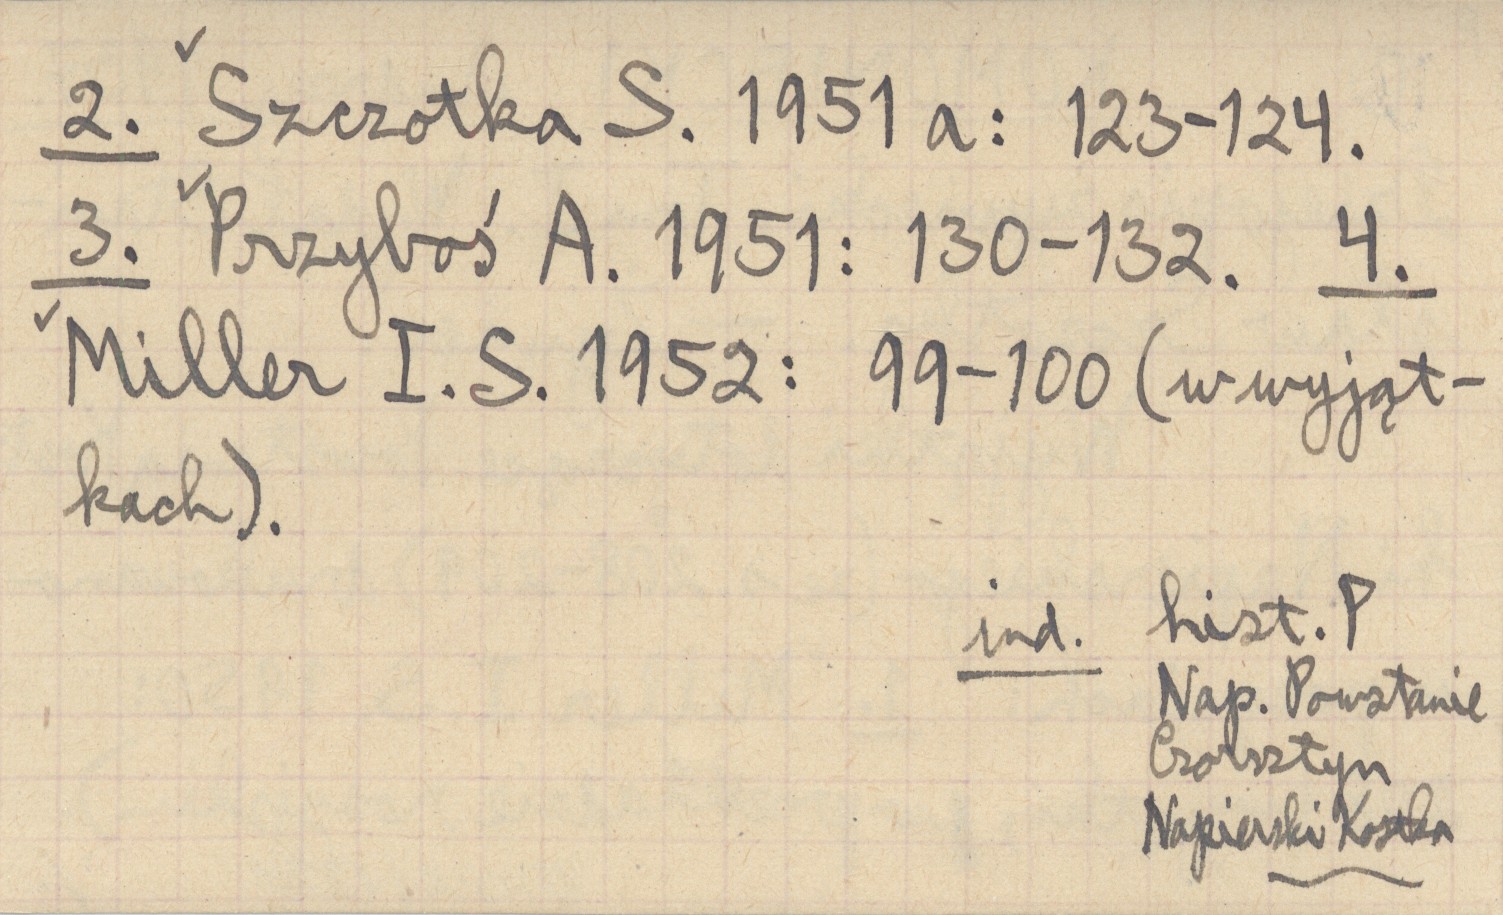 2. Szczotka S. 1951 a: 123-124.
3. Przyboś A. 1951: 130-132. 4.
Miller I. S. 1952: 99-100 (w wyjąt-
kach).
ind. hist. P
Nap. Powstanie
Czorsztyn
Napierski Kostka